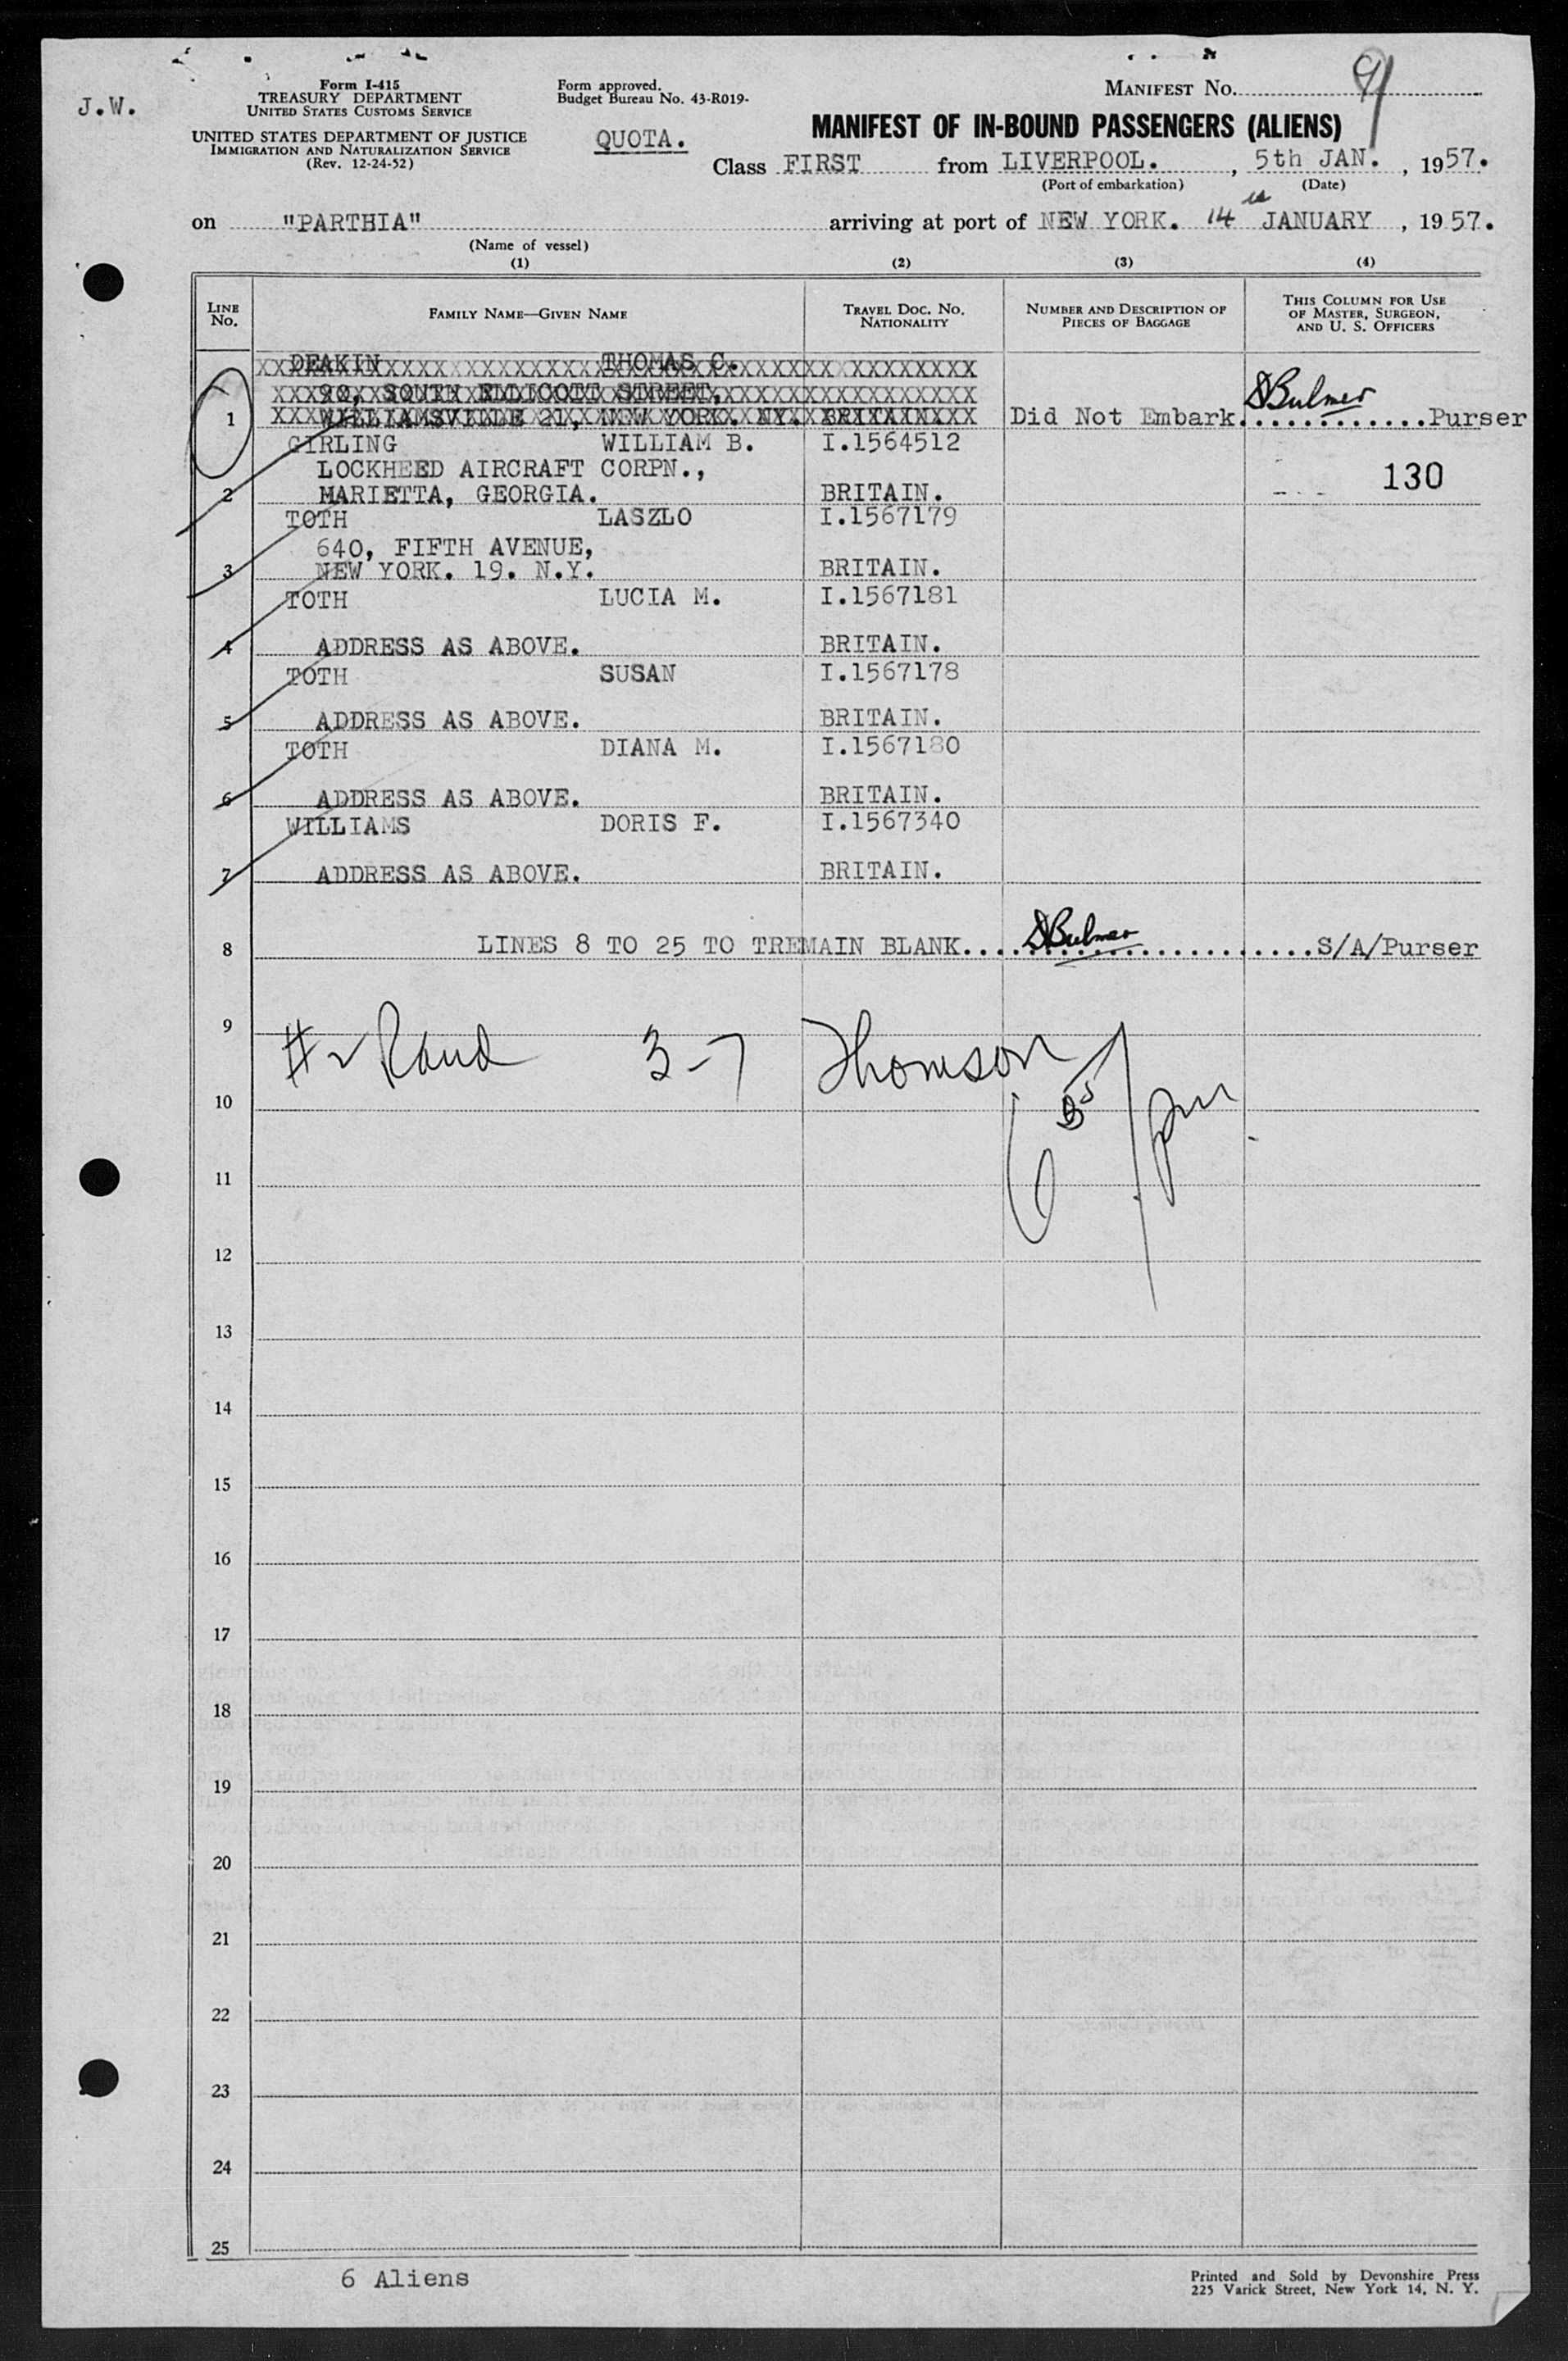 J.W.
Form I-415
TREASURY DEPARTMENT
UNITED STATES CUSTOMS SERVICE
UNITED STATES DEPARTMENT OF JUSTICE
IMMIGRATION AND NATURALIZATION SERVICE
(Rev. 12-24-52)
Form approved.
Budget Bureau No. 43-R019-
QUOTA.
MANIFEST NO. 91
MANIFEST OF IN-BOUND PASSENGERS (ALIENS)
Class FIRST from LIVERPOOL. , 5th JAN. , 1957.
(Port of embarkation) (Date)
on "PARTHIA" arriving at port of NEW YORK. 14 JANUARY , 1957.
(Name of vessel)
(1) (2) (3) (4)
LINE NO. FAMILY NAME—GIVEN NAME TRAVEL DOC. NO. NATIONALITY NUMBER AND DESCRIPTION OF PIECES OF BAGGAGE THIS COLUMN FOR USE OF MASTER, SURGEON, AND U. S. OFFICERS
DEAKIN THOMAS C.
90, SOUTH ELLICOTT STREET,
1 WILLIAMSVILLE 21, NEW YORK. NY. BRITAIN Did Not Embark. DBulmer Purser
GIRLING WILLIAM B. I.1564512
LOCKHEED AIRCRAFT CORPN., 130
2 MARIETTA, GEORGIA. BRITAIN.
TOTH LASZLO I.1567179
640, FIFTH AVENUE,
3 NEW YORK. 19. N.Y. BRITAIN.
TOTH LUCIA M. I.1567181
4 ADDRESS AS ABOVE. BRITAIN.
TOTH SUSAN I.1567178
5 ADDRESS AS ABOVE. BRITAIN.
TOTH DIANA M. I.1567180
6 ADDRESS AS ABOVE. BRITAIN.
WILLIAMS DORIS F. I.1567340
7 ADDRESS AS ABOVE. BRITAIN.
8 LINES 8 TO 25 TO TREMAIN BLANK.... DBulmer ....S/A/Purser
9
#2 Rand 3-7 Thomson
10
6 55 pm
11
12
13
14
15
16
17
18
19
20
21
22
23
24
25
6 Aliens
Printed and Sold by Devonshire Press
225 Varick Street, New York 14, N. Y.